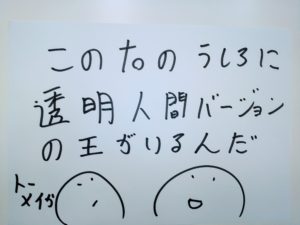 このたのうしろに
透明人間バージョン
の王がいるんだ
トー
メイが